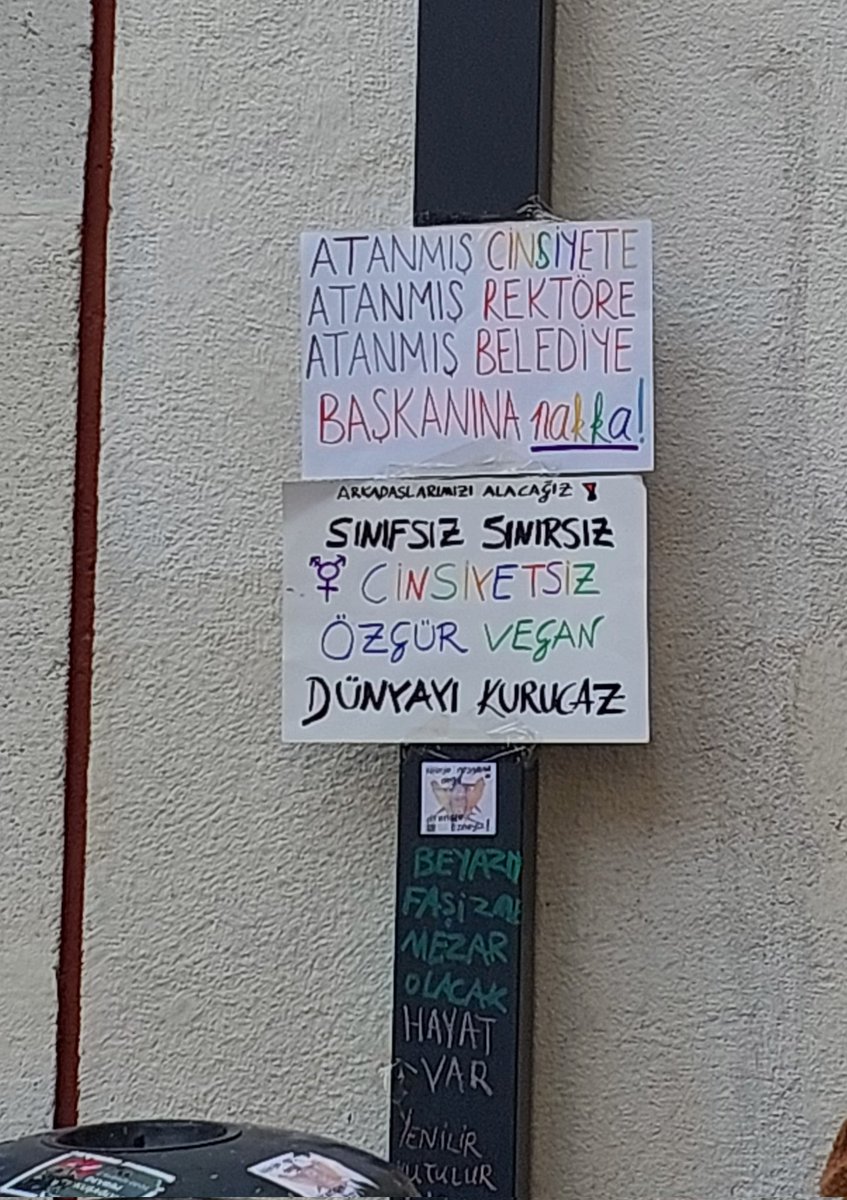 ATANMIŞ CİNSİYETE
ATANMIŞ REKTÖRE
ATANMIŞ BELEDİYE
BAŞKANINA nakka!
ARKADAŞLARIMIZI ALACAĞIZ
SINIFSIZ SINIRSIZ
⚧ CİNSİYETSİZ
ÖZGÜR VEGAN
DÜNYAYI KURUCAZ
BEYAZIT
FAŞİZME
MEZAR
OLACAK
HAYAT
VAR
YENİLİR